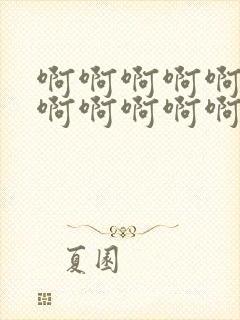 啊啊啊啊啊
啊啊啊啊啊
夏園